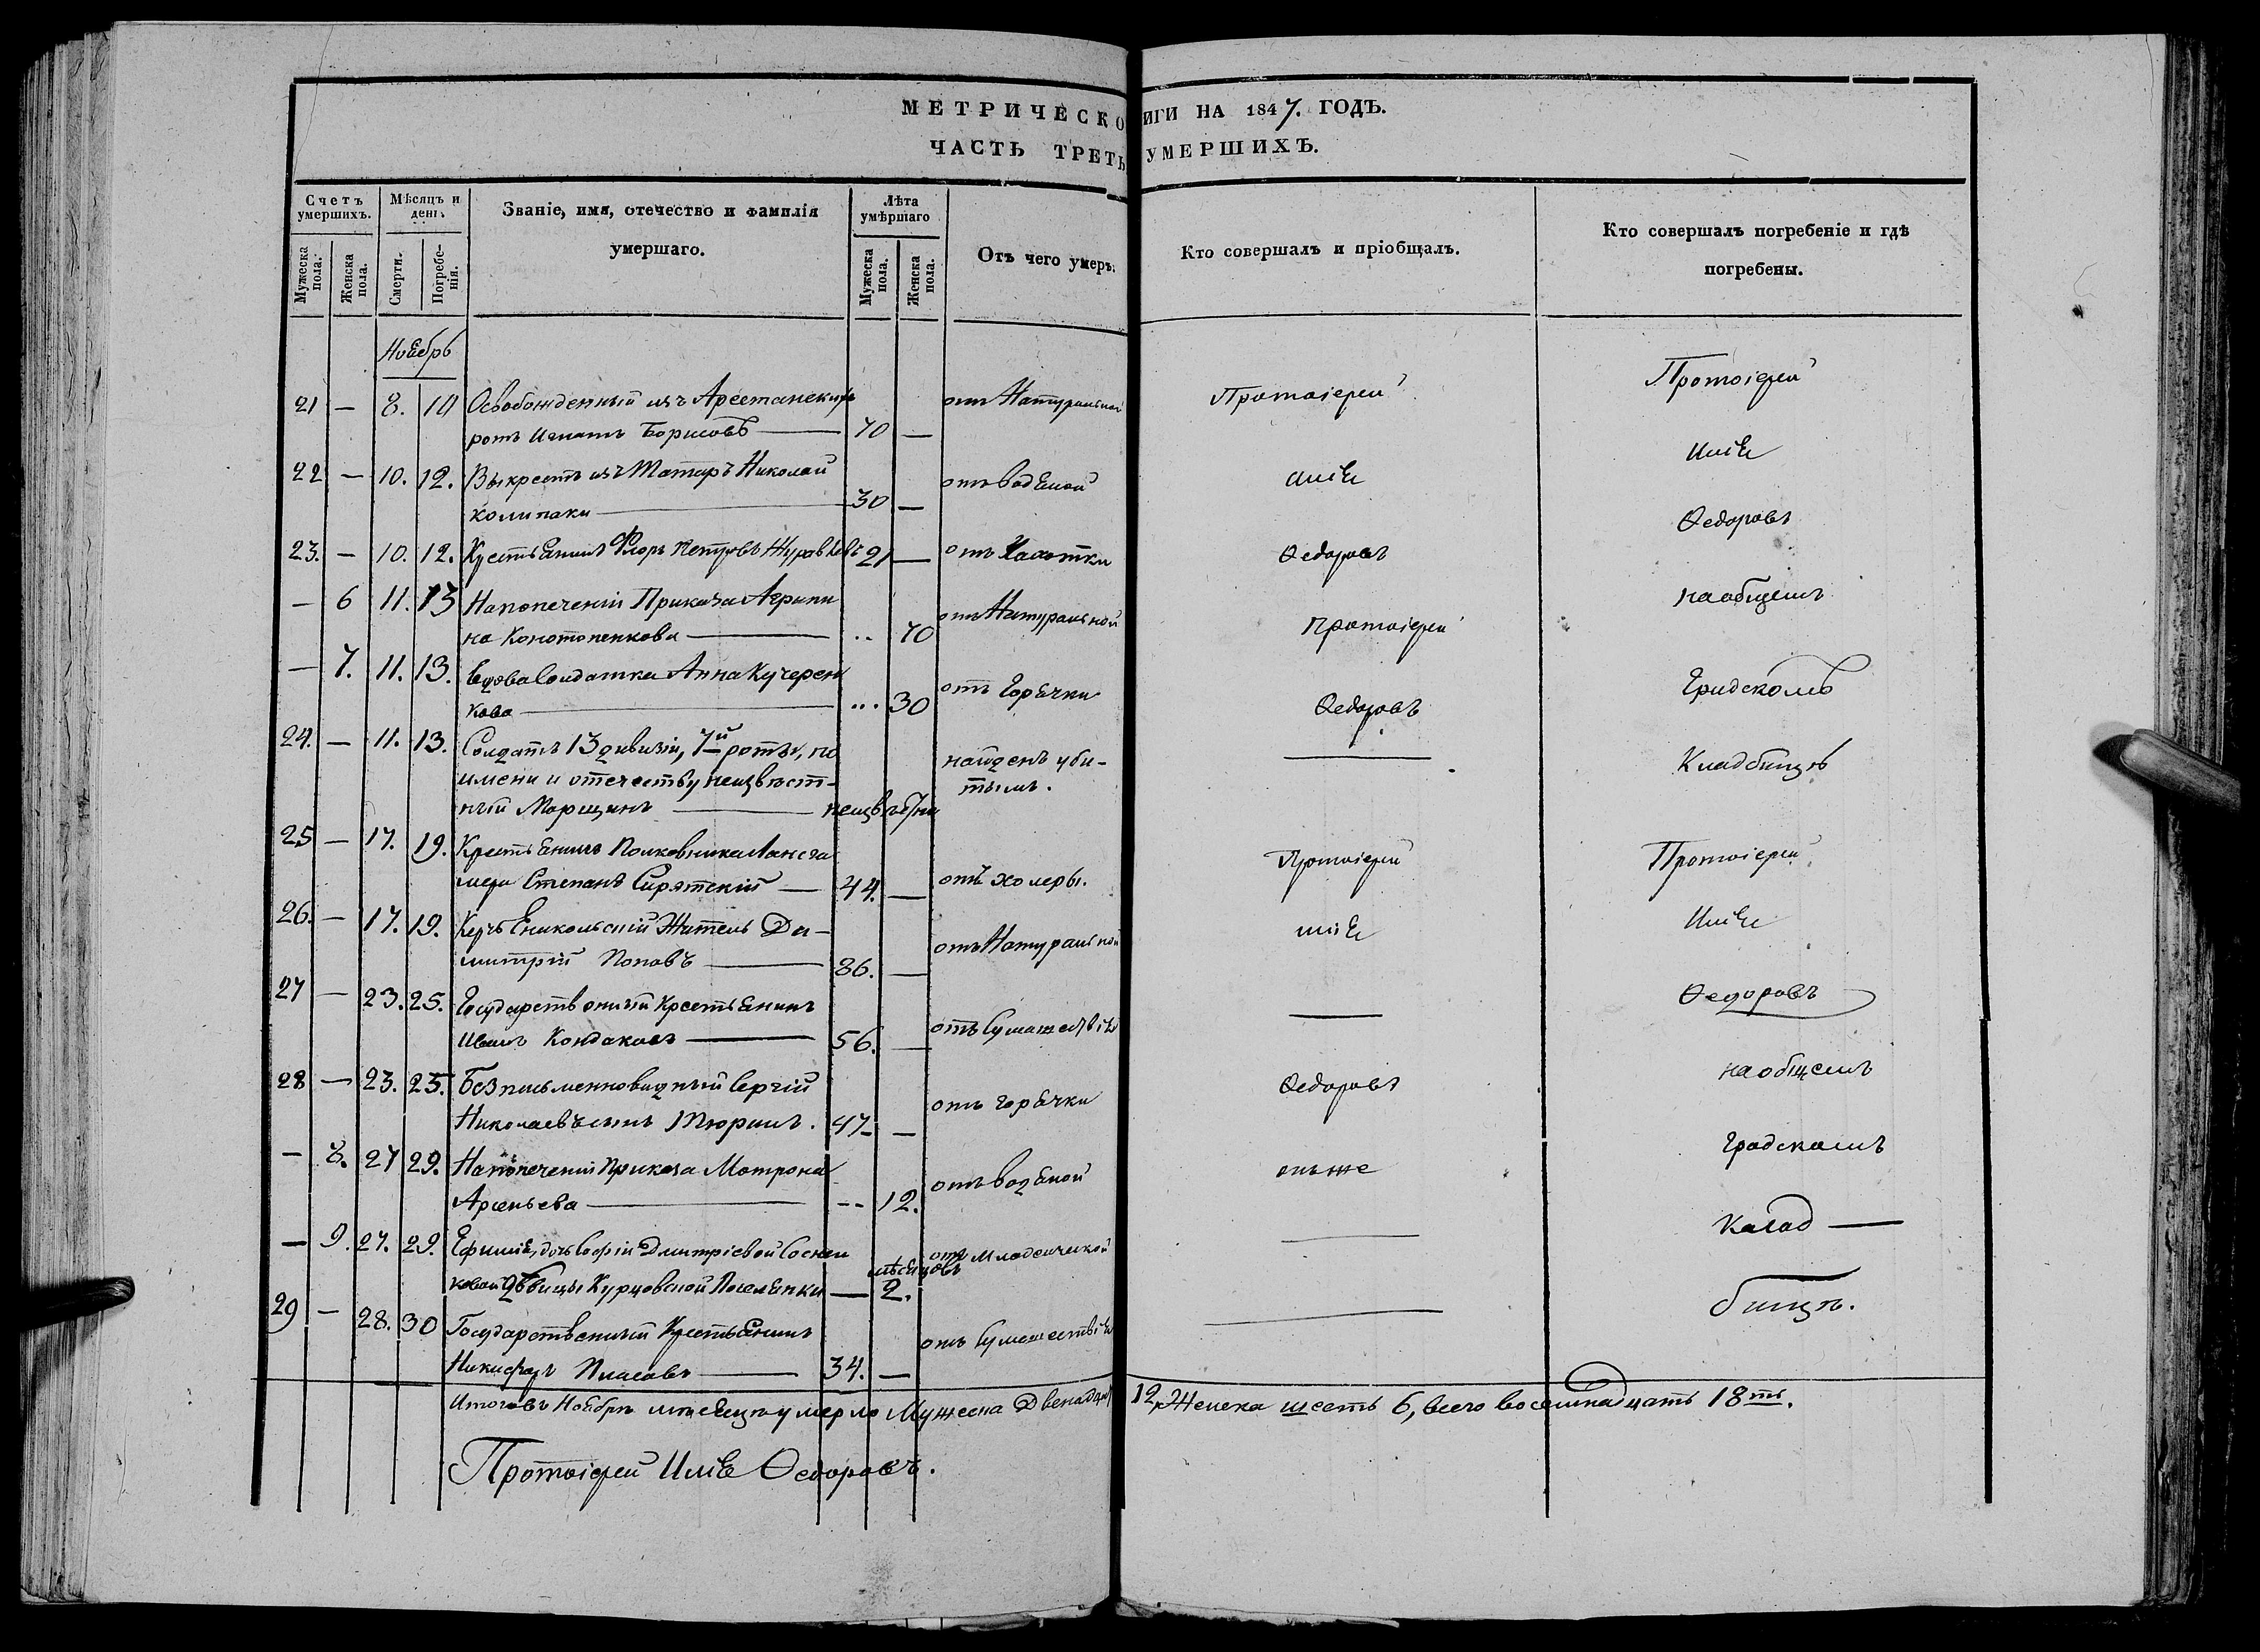 МЕТРИЧЕСКО ИГИ НА 1847. ГОДЪ.
ЧАСТЬ ТРЕТЬ УМЕРШИХЪ.
Счетъ умершихъ.
Мужеска пола.
Женска пола.
Мѣсяцъ и день.
Смерти.
Погребенія.
Званіе, имя, отечество и фамилія
умершаго.
Лѣта умѣршаго
Мужеска пола.
Женска пола.
Отъ чего умеръ.
Кто совершалъ и пріобщалъ.
Кто совершалъ погребеніе и гдѣ
погребены.
Ноябрь
21 — 8. 10 Освобожденный изъ Арестанскихъ отъ Натуральной Протоіерей Протоіерей
ротъ Игнатъ Борисовъ — 70 —
22 — 10. 12. Выкрестъ изъ Татаръ Николай отъ водяной Иліѧ Иліѧ
Колипаки — 30 —
23. — 10. 12. Крестьянинъ Флоръ Петровъ Журавлевъ 21 — отъ Чахотки Ѳедоровъ Ѳедоровъ
— 6 11. 13 На попеченіи Приказа Агрипи отъ Натуральной Протоіерей на общемъ
на Конотопенкова — .. 70
— 7. 11. 13. Вдова Солдатка Анна Кучерен отъ Горячки Ѳедоровъ Градскомъ
кова — ... 30
24. — 11. 13. Солдатъ 13 дивизіи, 7й роты, по найденъ уби- — Кладбищѣ
имени и отечеству неизвѣст- тымъ.
ный Морщинъ — неизвѣстно
25 — 17. 19. Крестьянинъ Полковника Ланга отъ холеры. Протоіерей Протоіерей
мера Степанъ Сирятскій — 44. —
26. — 17. 19. Керчь Еникольскій Житель Ди- отъ Натуральной Иліѧ Иліѧ
митрій Поповъ — 86. —
27 — 23. 25. Государственный Крестьянинъ отъ Сумашедствія — Ѳедоровъ
Иванъ Кондаковъ — 56. —
28 — 23. 25. Безписьменновидный Сергій отъ горячки Ѳедоровъ на общемъ
Николаевъ сынъ Тюринъ. 47 —
— 8. 27 29. На попеченіи Приказа Мотрона отъ водяной онъ же Градскомъ
Арсеньева — -- 12.
— 9. 27. 29. Ефимія, дочь Софіи Дмитріевой Сосни отъ Младенческой — Клад —
ковой дѣвицы Курцовской Поселянки — мѣсяцовъ 2.
29 — 28. 30 Государственный Крестьянинъ отъ Сумашествія — бищѣ.
Никифоръ Власовъ — 34. —
Итого въ Ноябрѣ мѣсяцѣ умерло Мужеска Двенадцать 12, Женска шесть 6, всего восемнадцать 18ть.
Протоіерей Иліѧ Ѳедоровъ.